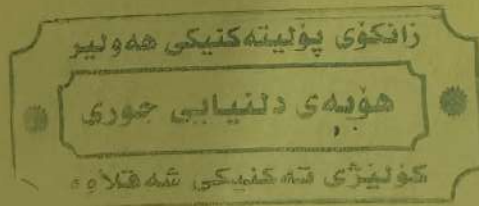 زانکۆی پۆلیتەکنیکی هەولێر
هۆبەی دلنیایی جۆری
کۆلیژی تەکنیکی شەقلاوە